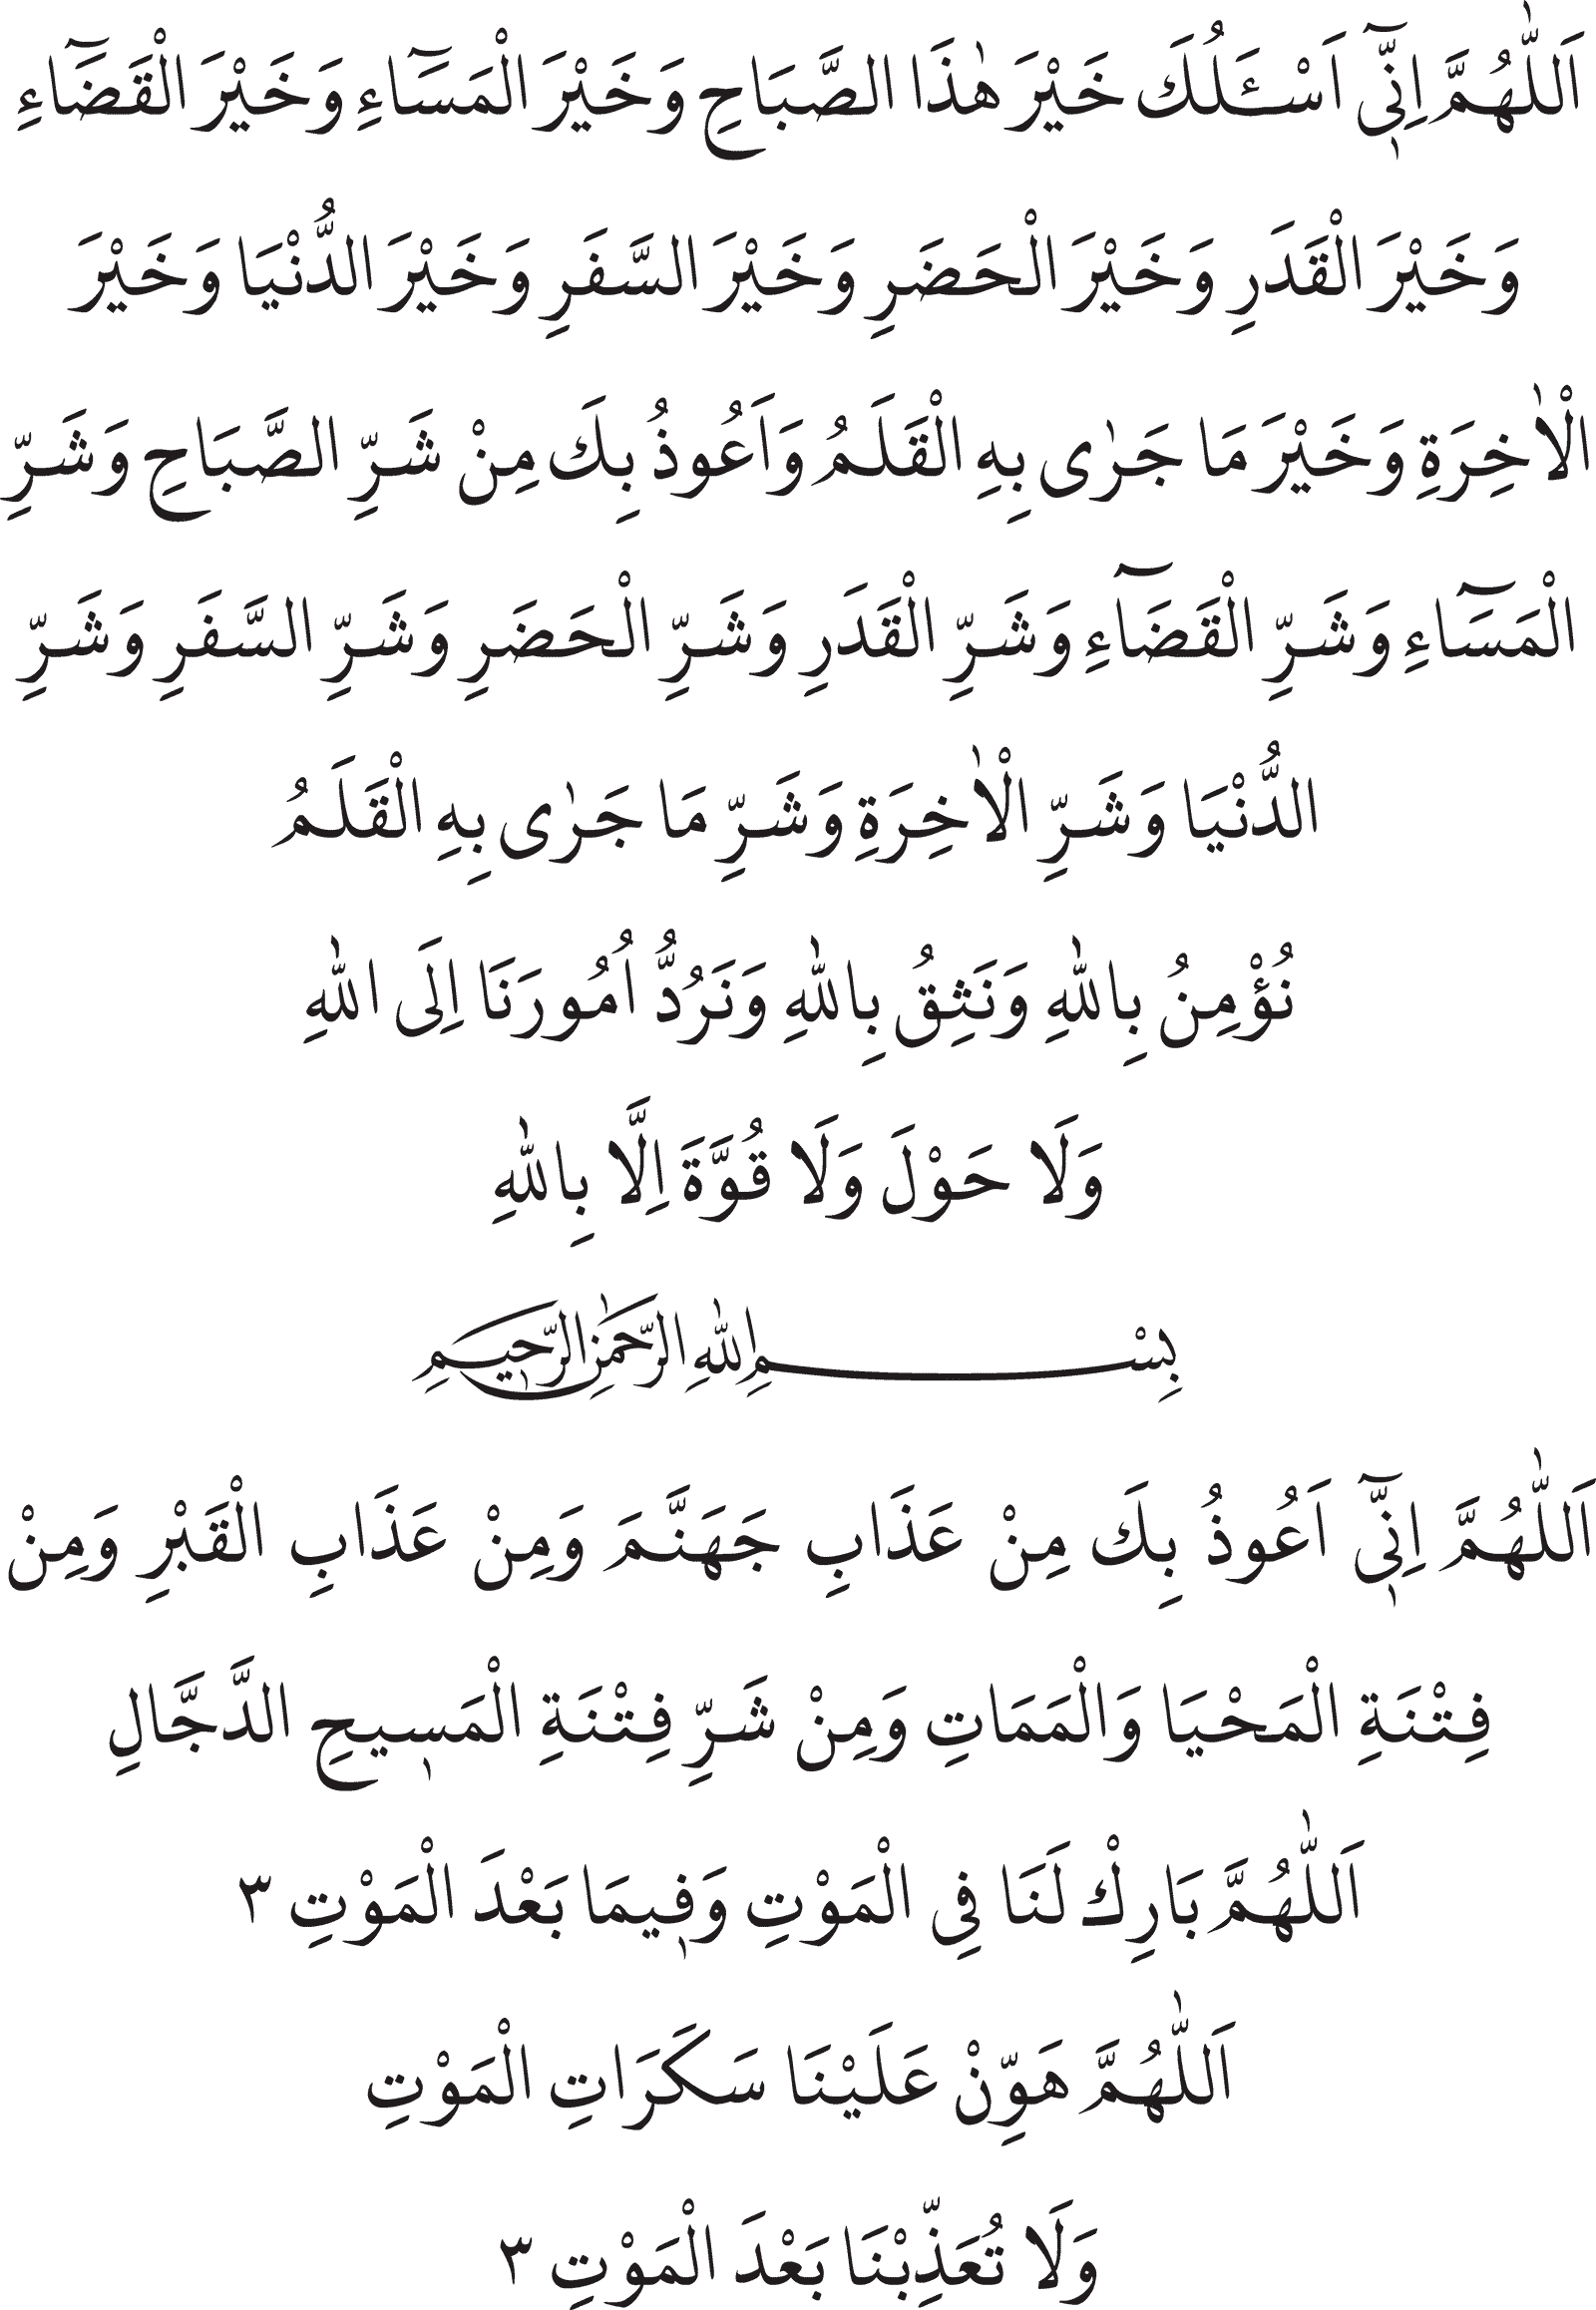 اَللّٰهُمَّ اِنّ۪ٓي اَسْـَٔلُكَ خَيْرَ هٰذَا الصَّبَاحِ وَخَيْرَ الْمَسَٓاءِ وَخَيْرَ الْقَضَٓاءِ
وَخَيْرَ الْقَدَرِ وَخَيْرَ الْحَضَرِ وَخَيْرَ السَّفَرِ وَخَيْرَ الدُّنْيَا وَخَيْرَ
الْاٰخِرَةِ وَخَيْرَ مَا جَرٰى بِهِ الْقَلَمُ وَاَعُوذُ بِكَ مِنْ شَرِّ الصَّبَاحِ وَشَرِّ
الْمَسَٓاءِ وَشَرِّ الْقَضَٓاءِ وَشَرِّ الْقَدَرِ وَشَرِّ الْحَضَرِ وَشَرِّ السَّفَرِ وَشَرِّ
الدُّنْيَا وَشَرِّ الْاٰخِرَةِ وَشَرِّ مَا جَرٰى بِهِ الْقَلَمُ
نُؤْمِنُ بِاللّٰهِ وَنَثِقُ بِاللّٰهِ وَنَرُدُّ اُمُورَنَا اِلَى اللّٰهِ
وَلَا حَوْلَ وَلَا قُوَّةَ اِلَّا بِاللّٰهِ
بِسْمِ اللّٰهِ الرَّحْمٰنِ الرَّح۪يمِ
اَللّٰهُمَّ اِنّ۪ٓي اَعُوذُ بِكَ مِنْ عَذَابِ جَهَنَّمَ وَمِنْ عَذَابِ الْقَبْرِ وَمِنْ
فِتْنَةِ الْمَحْيَا وَالْمَمَاتِ وَمِنْ شَرِّ فِتْنَةِ الْمَس۪يحِ الدَّجَّالِ
اَللّٰهُمَّ بَارِكْ لَنَا فِي الْمَوْتِ وَف۪يمَا بَعْدَ الْمَوْتِ ٣
اَللّٰهُمَّ هَوِّنْ عَلَيْنَا سَكَرَاتِ الْمَوْتِ
وَلَا تُعَذِّبْنَا بَعْدَ الْمَوْتِ ٣